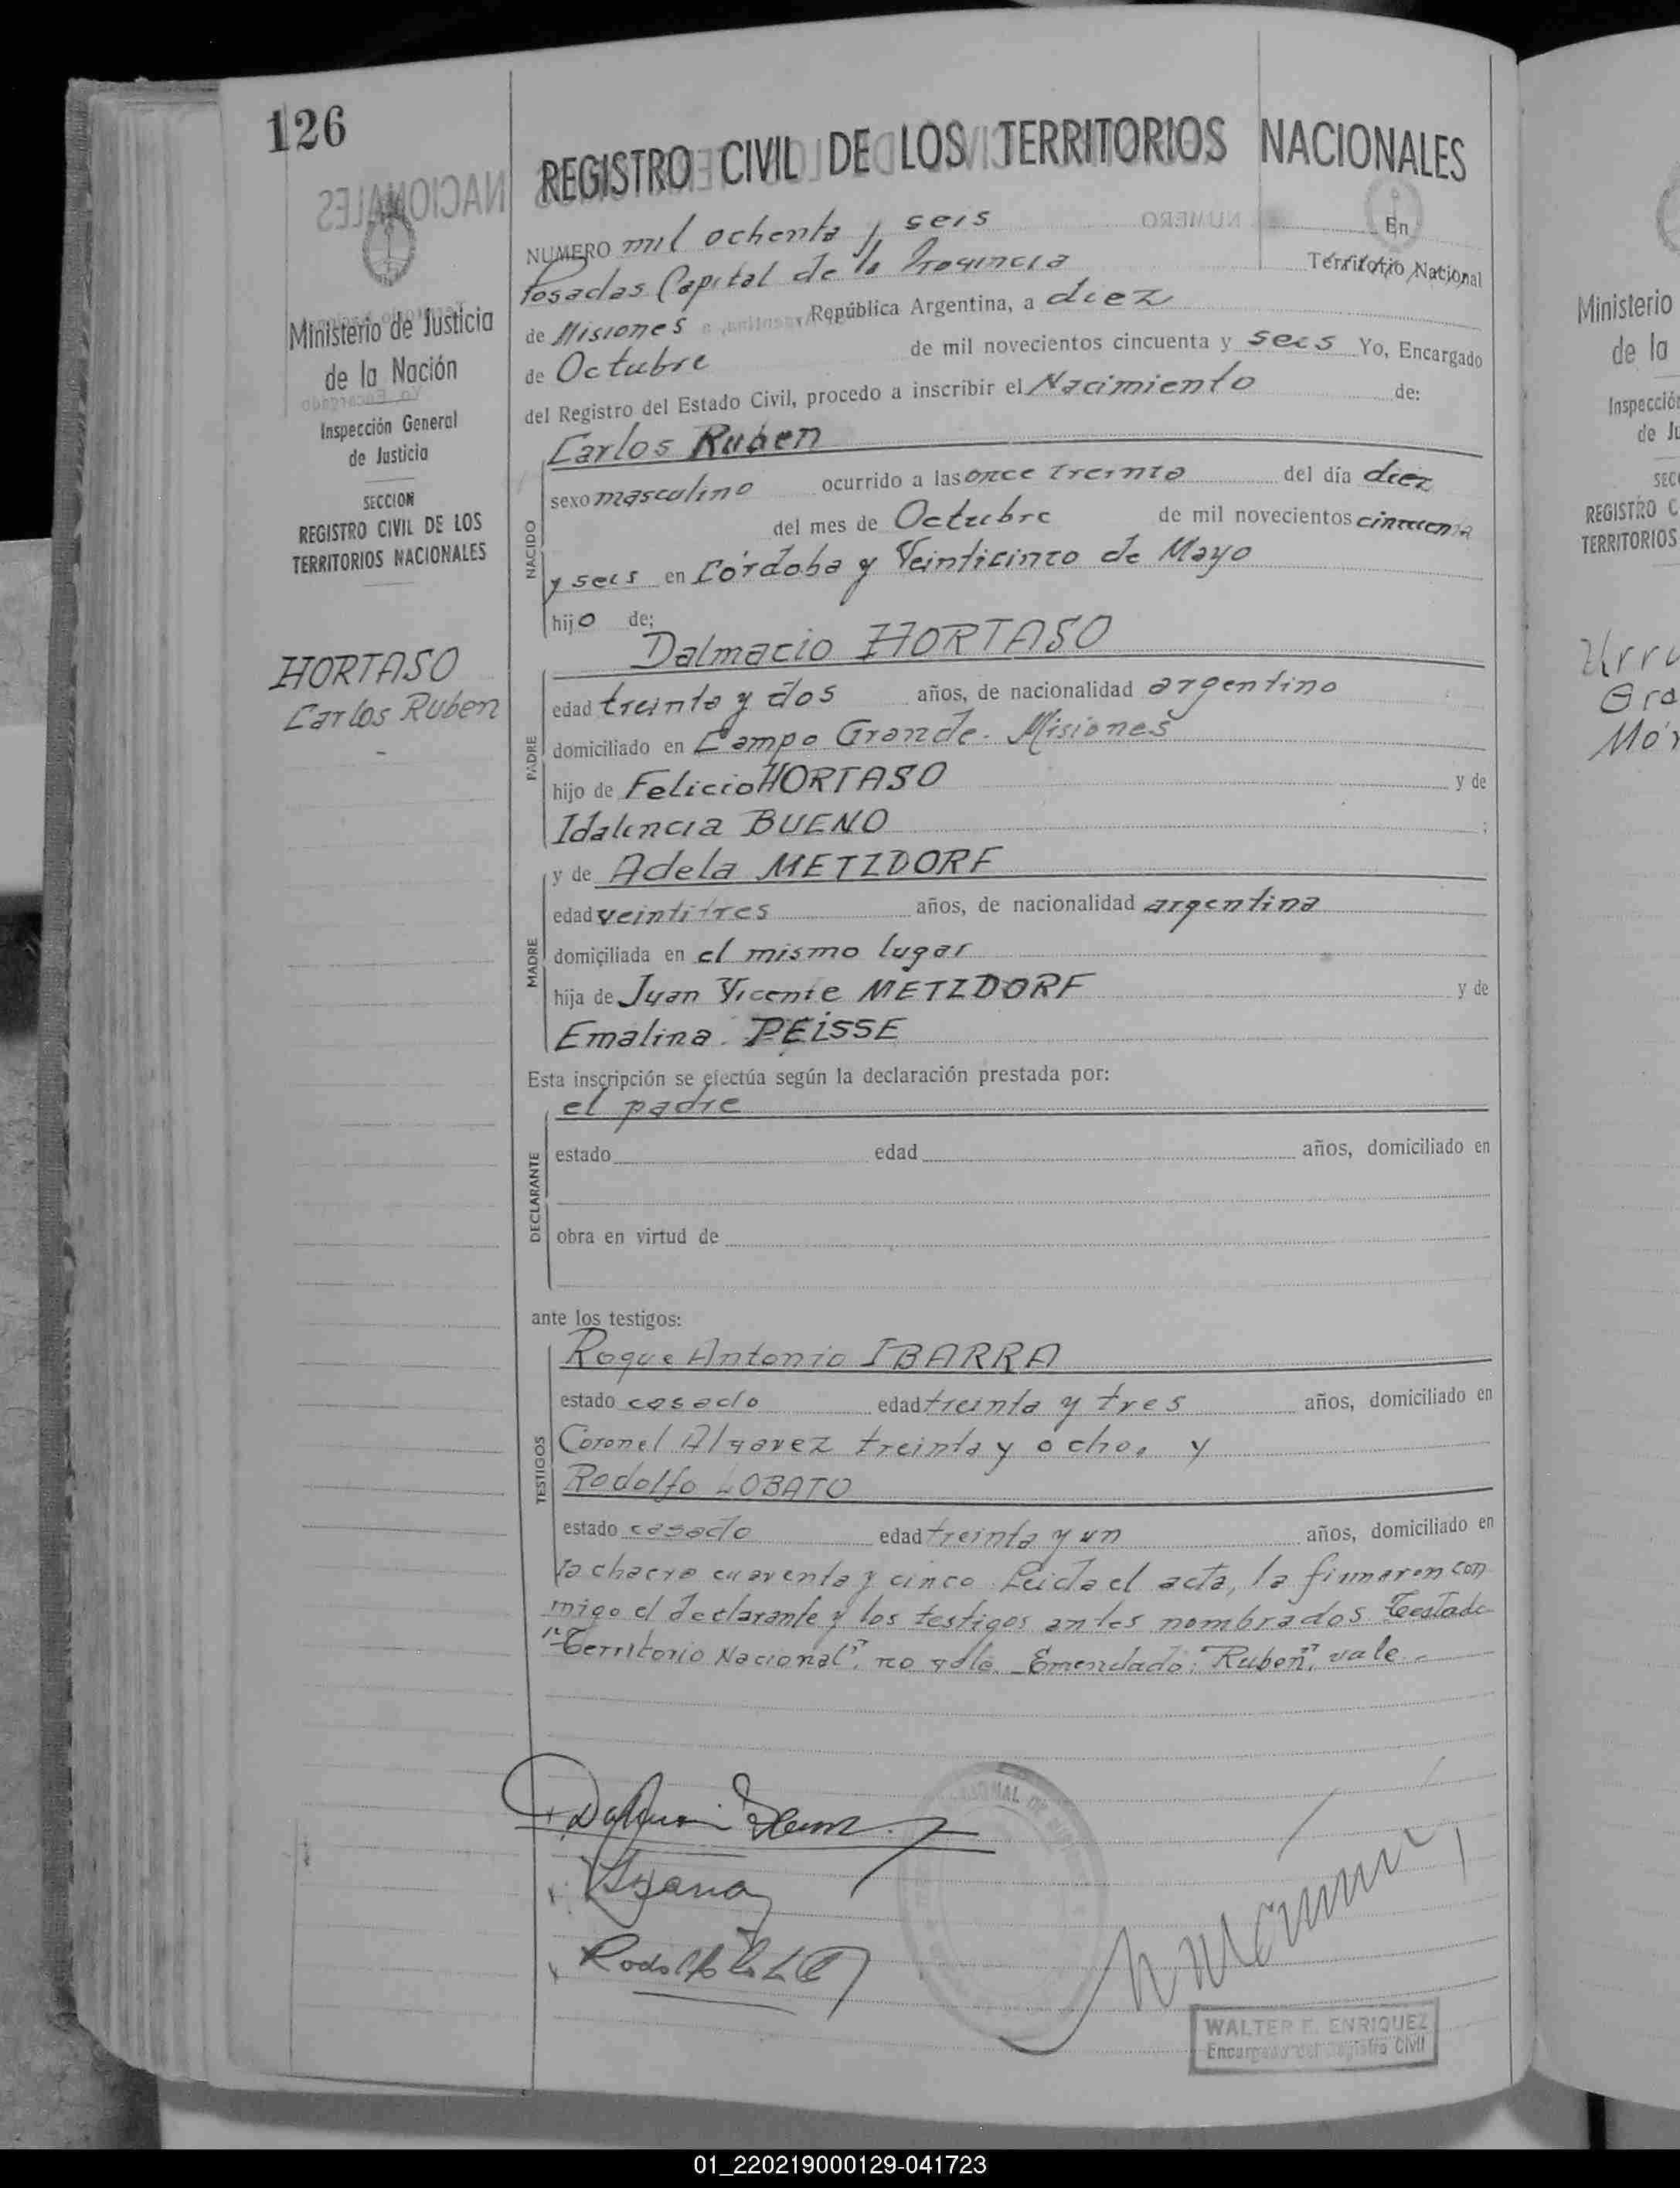 126
REGISTRO CIVIL DE LOS TERRITORIOS NACIONALES
NUMERO mil ochenta y seis En
Posadas Capital de la Provincia Territorio Nacional
de Misiones República Argentina, a diez
de Octubre de mil novecientos cincuenta y seis Yo, Encargado
del Registro del Estado Civil, procedo a inscribir el Nacimiento de:
Carlos Ruben
NACIDO
sexo masculino ocurrido a las once treinta del día diez
del mes de Octubre de mil novecientos cincuenta
y seis en Córdoba y Veinticinco de Mayo
hijo de:
Dalmacio HORTASO
PADRE
edad treinta y dos años, de nacionalidad argentino
domiciliado en Campo Grande. Misiones
hijo de Felicio HORTASO y de
Idalencia BUENO ;
y de Adela METZDORF
MADRE
edad veintitres años, de nacionalidad argentina
domiciliada en el mismo lugar
hija de Juan Vicente METZDORF y de
Emalina PEISSE
Esta inscripción se efectúa según la declaración prestada por:
el padre
DECLARANTE
estado edad años, domiciliado en
obra en virtud de
ante los testigos:
TESTIGOS
Roque Antonio IBARRA
estado casado edad treinta y tres años, domiciliado en
Coronel Alvarez treinta y ocho, y
Rodolfo LOBATO
estado casado edad treinta y un años, domiciliado en
la chacra cuarenta y cinco Leida el acta, la firmaron con
migo el declarante y los testigos antes nombrados Testado
"Territorio Nacional", no vale. Emendado: "Ruben", vale.-
Ministerio de Justicia
de la Nación
Inspección General
de Justicia
SECCION
REGISTRO CIVIL DE LOS
TERRITORIOS NACIONALES
HORTASO
Carlos Ruben
-
WALTER E. ENRIQUEZ
Encargado del Registro Civil
Ministerio
de la
Inspección
de Ju
SECC
REGISTRO C
TERRITORIOS
01_220219000129-041723